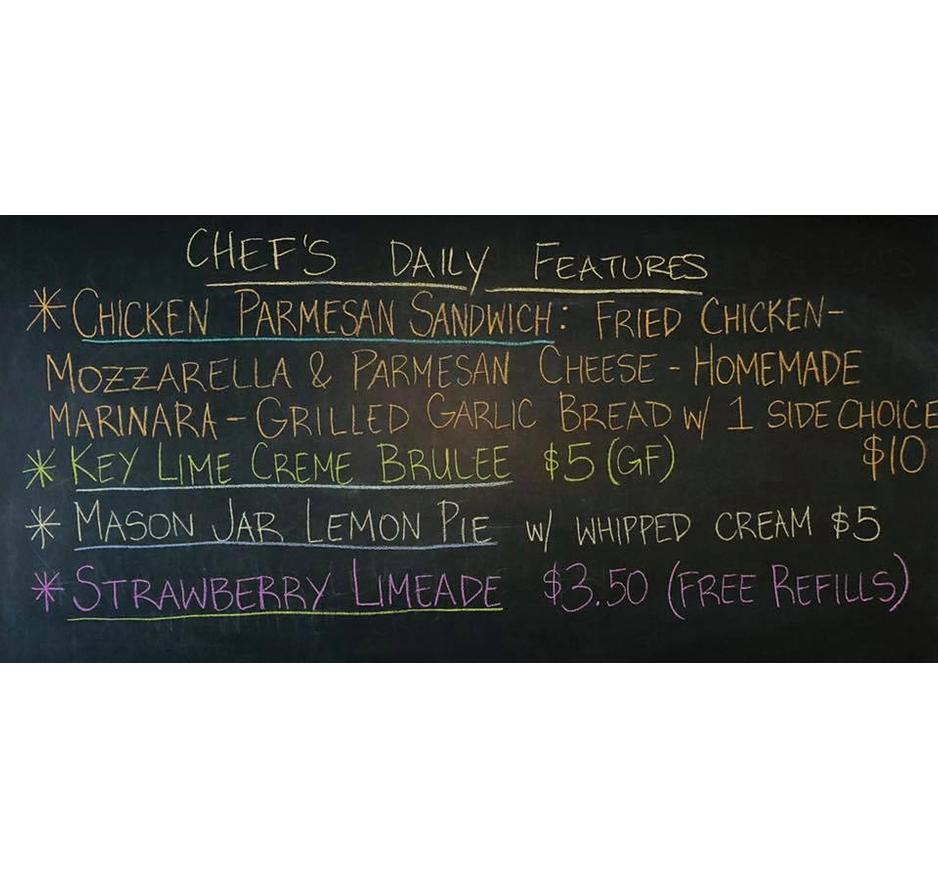 CHEF'S DAILY FEATURES
* CHICKEN PARMESAN SANDWICH: FRIED CHICKEN-
MOZZARELLA & PARMESAN CHEESE - HOMEMADE
MARINARA - GRILLED GARLIC BREAD W/ 1 SIDE CHOICE
$10
* KEY LIME CREME BRULEE $5 (GF)
* MASON JAR LEMON PIE W/ WHIPPED CREAM $5
* STRAWBERRY LIMEADE $3.50 (FREE REFILLS)